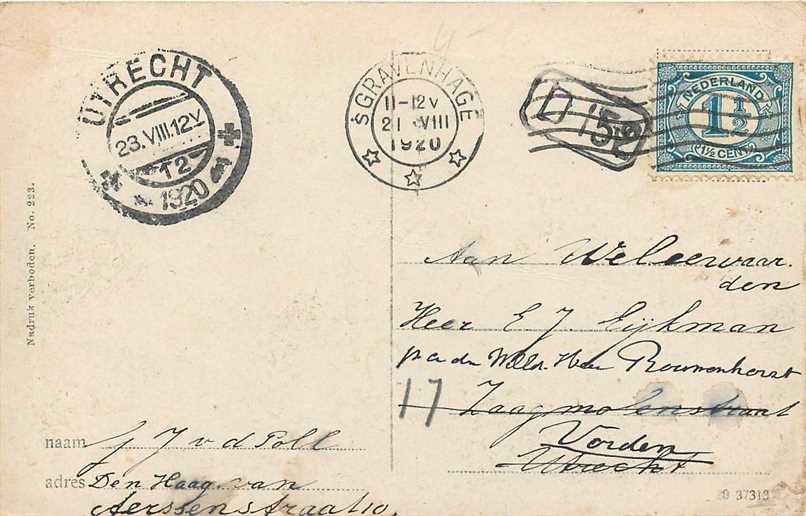 UTRECHT
23.VIII.12V
12
1920
'SGRAVENHAGE
11-12V
21 VIII
1920
NEDERLAND
1½
1½ CENT
Nadruk verboden. No. 223.
Aan Weleerwaar
den
Heer E J. Eijkman
Heer Bouwenhorst
17 Zaagmolenstraat
Vorden
Utrecht
naam J J v d Poll
adres Den Haag van
Aerssenstraat 10.